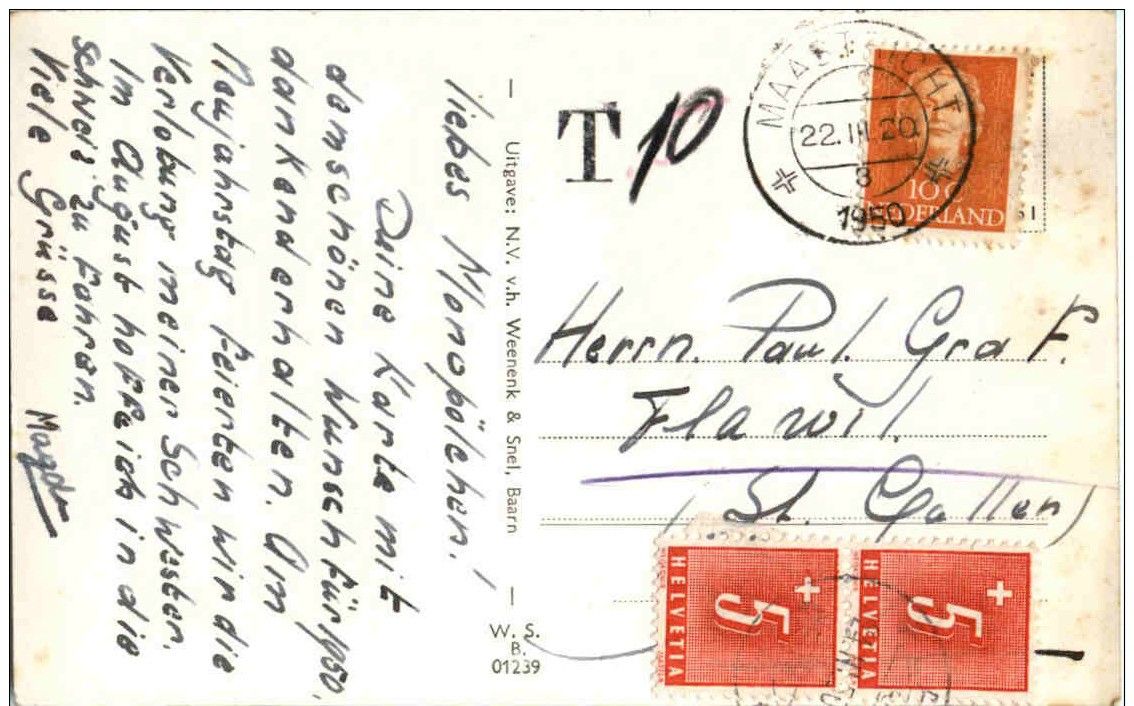 liebes Monopölchen!
Deine Karte mit
den schönen Wunsch für 1950
dankend erhalten. Am
Neujahrstag feierten wir die
Verlobung meiner Schwester.
Im August hoffe ich in die
Schweiz zu fahren.
Viele Grüsse
Magda
Uitgave: N.V. v.h. Weenenk & Snel, Baarn
W. S.
B.
01239
T 10
MAASTRICHT
22.III.20
8
1950
10 C
NEDERLAND
Herrn. Paul Graf.
Flawil.
(St. Gallen)
HELVETIA
5
HELVETIA
5